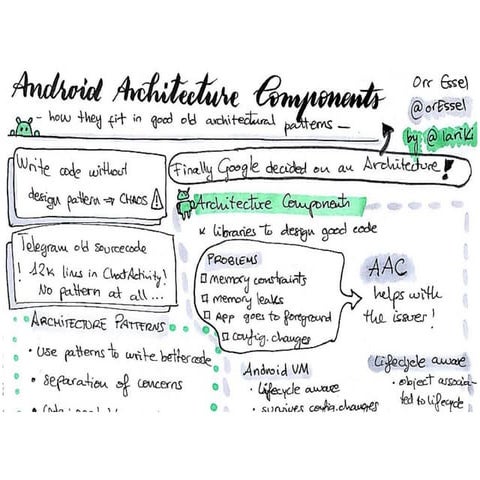 Android Architecture Components
- how they fit in good old architectural patterns -
Orr Essel
@orEssel
by @lariki
Write code without
design pattern → CHAOS
Finally Google decided on an Architecture!
Telegram old sourcecode
! 12k lines in ChatActivity!
No pattern at all ...
ARCHITECTURE PATTERNS
• use patterns to write better code
• separation of concerns
Architecture Components
libraries to design good code
PROBLEMS
memory constraints
memory leaks
App goes to foreground
config. changes
AAC
helps with
the issues!
Android VM
• lifecycle aware
• survives config. changes
Lifecycle aware
• object associa-
ted to lifecycle